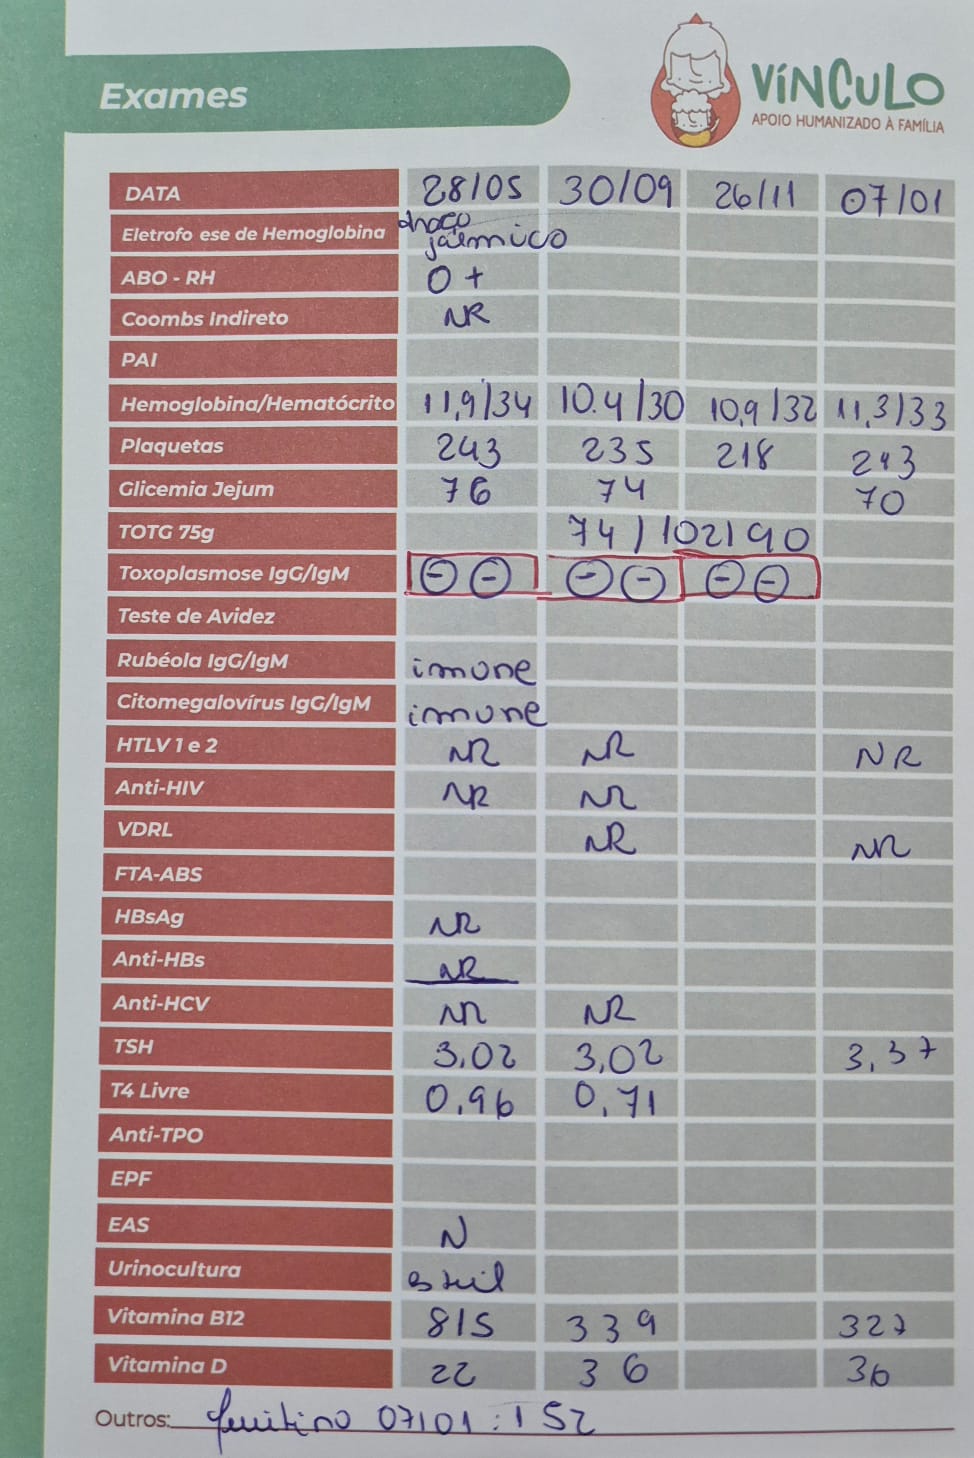 Exames
VÍNCULO
APOIO HUMANIZADO À FAMÍLIA
DATA 28/05 30/09 26/11 07/01
Eletrofo ese de Hemoglobina traço
falêmico
ABO - RH O +
Coombs Indireto NR
PAI
Hemoglobina/Hematócrito 11,9/34 10.4/30 10,9/32 11,3/33
Plaquetas 243 235 218 243
Glicemia Jejum 76 74 70
TOTG 75g 74/102/90
Toxoplasmose IgG/IgM - - - - - -
Teste de Avidez
Rubéola IgG/IgM imune
Citomegalovírus IgG/IgM imune
HTLV 1 e 2 NR NR NR
Anti-HIV NR NR
VDRL NR NR
FTA-ABS
HBsAg NR
Anti-HBs NR
Anti-HCV NR NR
TSH 3,02 3,02 3,37
T4 Livre 0,96 0,71
Anti-TPO
EPF
EAS N
Urinocultura estéril
Vitamina B12 815 339 327
Vitamina D 22 36 36
Outros: ferritina 07/01: 152